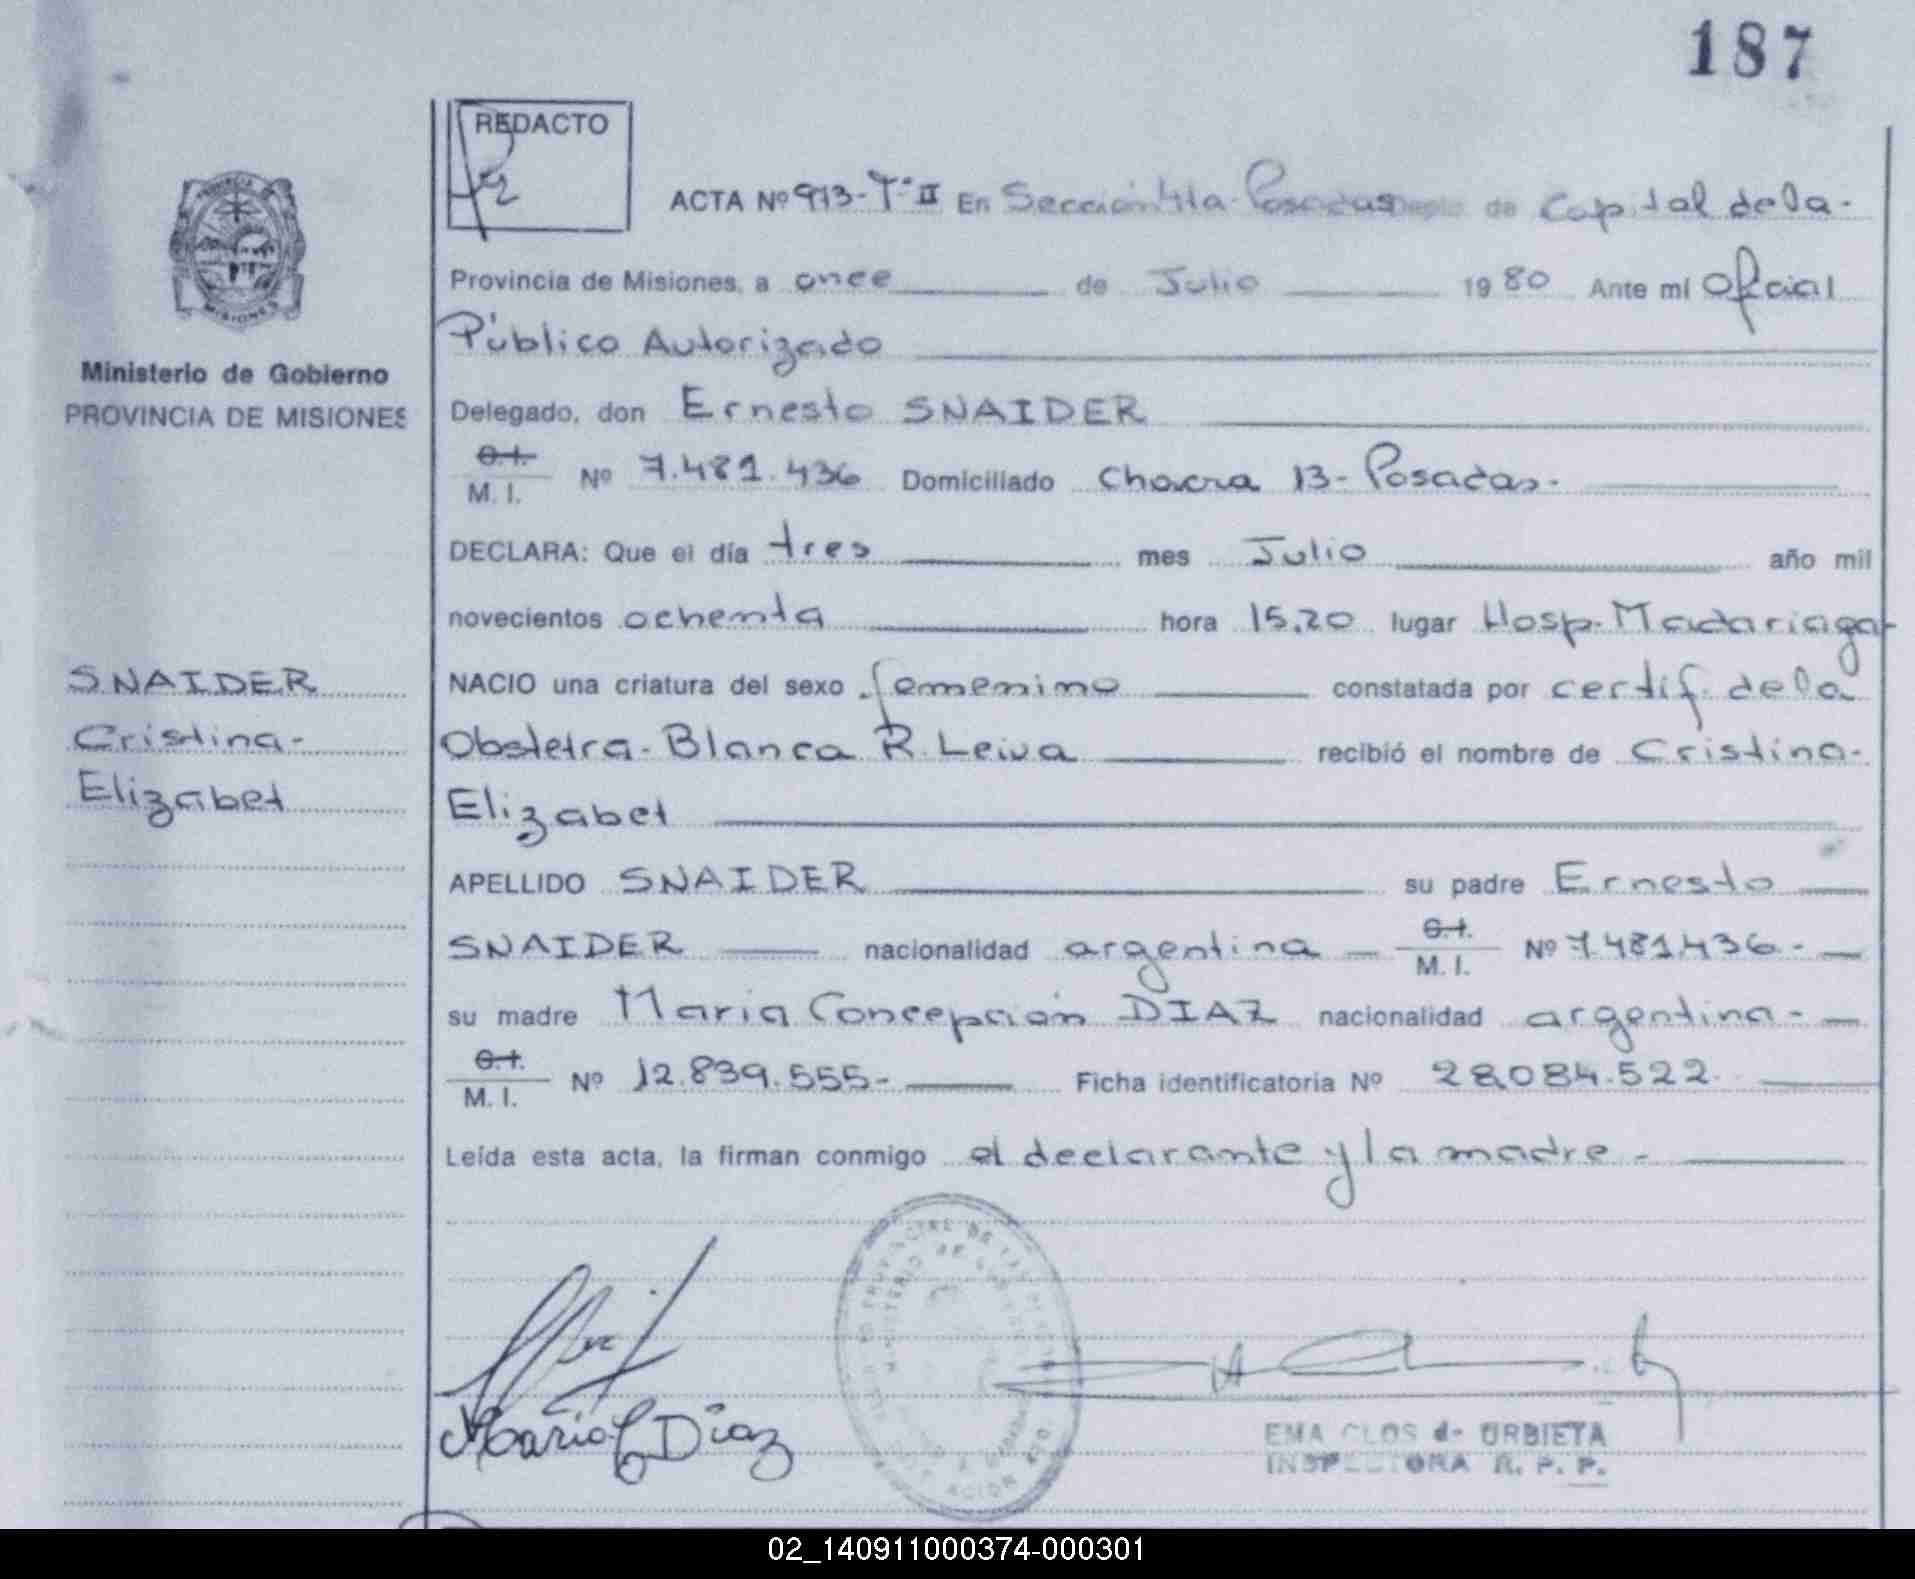 187
REDACTO
ACTA Nº 973-Tº II En Sección 4ta-Posadas Depto. de Capital de la-
Provincia de Misiones, a once de Julio 19 80 Ante mí Oficial
Público Autorizado
Ministerio de Gobierno
PROVINCIA DE MISIONES
Delegado, don Ernesto SNAIDER
C.I.
M. I. Nº 7.481.436 Domiciliado Chacra 13- Posadas.
DECLARA: Que el día tres mes Julio año mil
novecientos ochenta hora 15,20 lugar Hosp. Madariaga-
SNAIDER
Cristina-
Elizabet
NACIO una criatura del sexo femenino constatada por certif. de la
Obstetra- Blanca R. Leiva recibió el nombre de Cristina-
Elizabet
APELLIDO SNAIDER su padre Ernesto
SNAIDER nacionalidad argentina C.I. M. I. Nº 7.481.436-
su madre María Concepción DIAZ nacionalidad argentina-
C.I.
M. I. Nº 12.839.555- Ficha identificatoria Nº 28.084.522
Leída esta acta, la firman conmigo el declarante y la madre-
Maria C Diaz
EMA CLOS de URBIETA
INSPECTORA R. P. P.
02_140911000374-000301